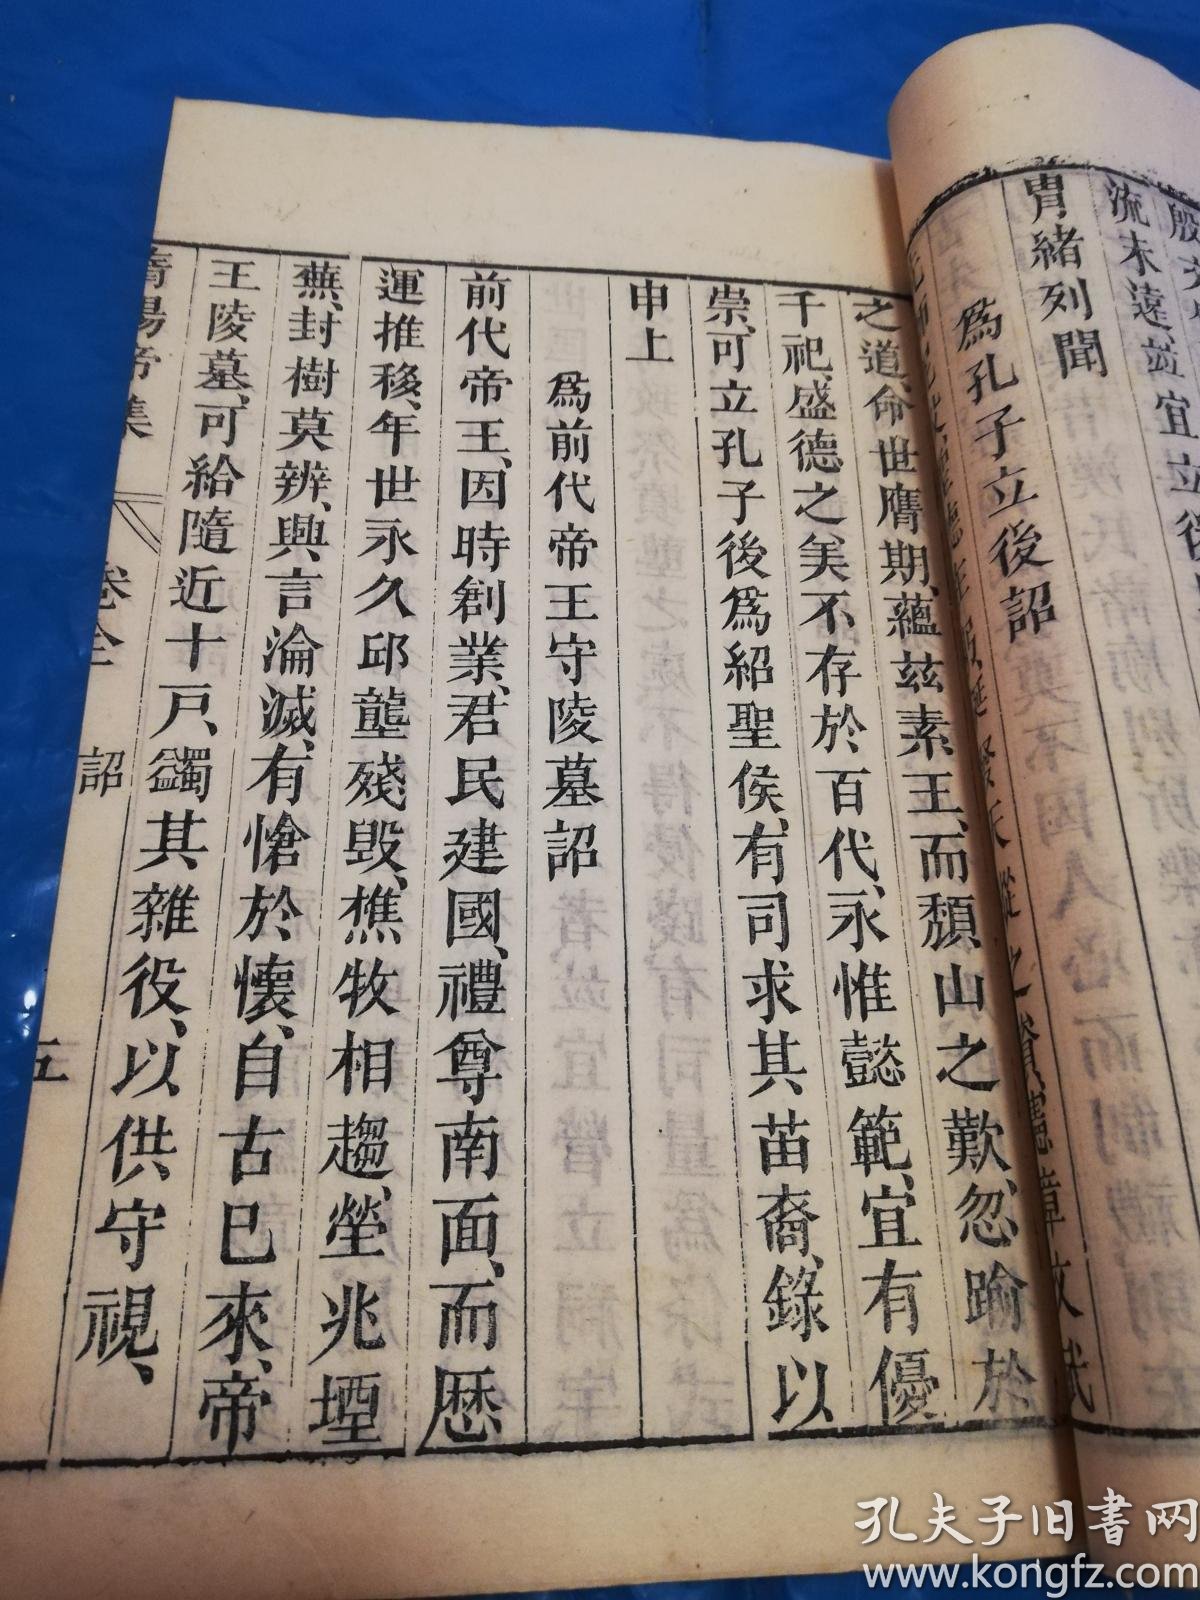 流未遠並宜立後
胄緒列聞
爲孔子立後詔
之道、命世膺期、蘊茲素王、而頹山之歎、忽踰於
千祀、盛德之美、不存於百代、永惟懿範、宜有優
崇、可立孔子後爲紹聖侯、有司求其苗裔、錄以
申上
爲前代帝王守陵墓詔
前代帝王、因時創業、君民建國、禮尊南面、而歷
運推移、年世永久邱壟殘毀、樵牧相趨、塋兆堙
蕪、封樹莫辨、興言淪滅、有愴於懷、自古巳來、帝
王陵墓、可給隨近十戸、蠲其雜役、以供守視、
隋煬帝集 卷全 詔 五
孔夫子旧書网
www.kongfz.com